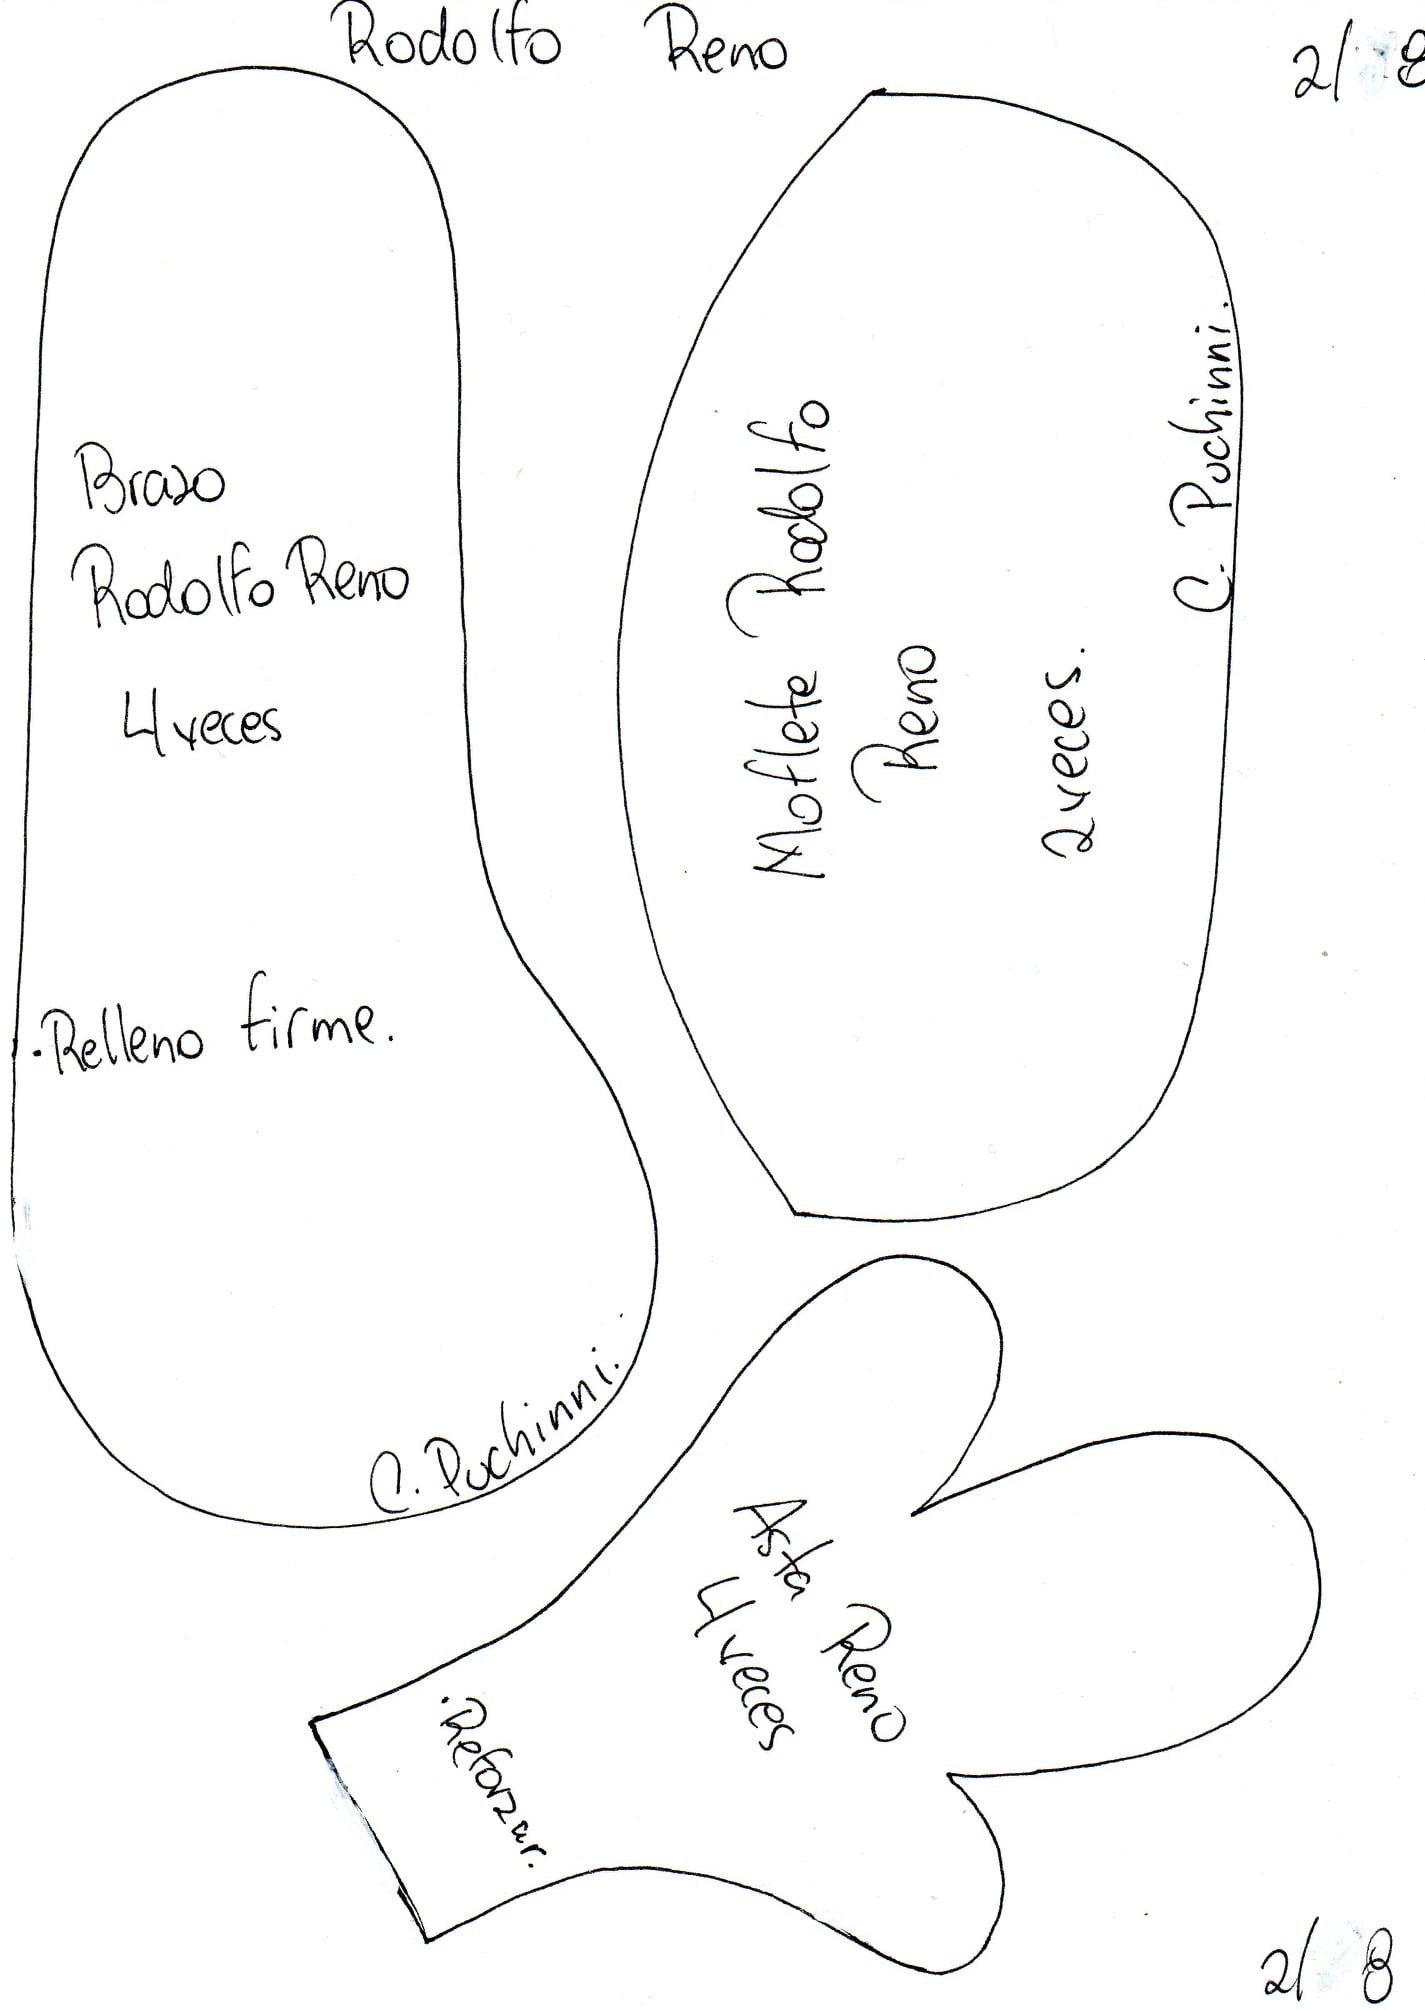 Rodolfo Reno
2/ 8
Brazo
Rodolfo Reno
4 veces
·Relleno firme.
C. Puchinni.
Moflete Rodolfo
Reno
2 veces.
C. Puchinni.
Asta Reno
4 veces
·Reforzar.
2/ 8